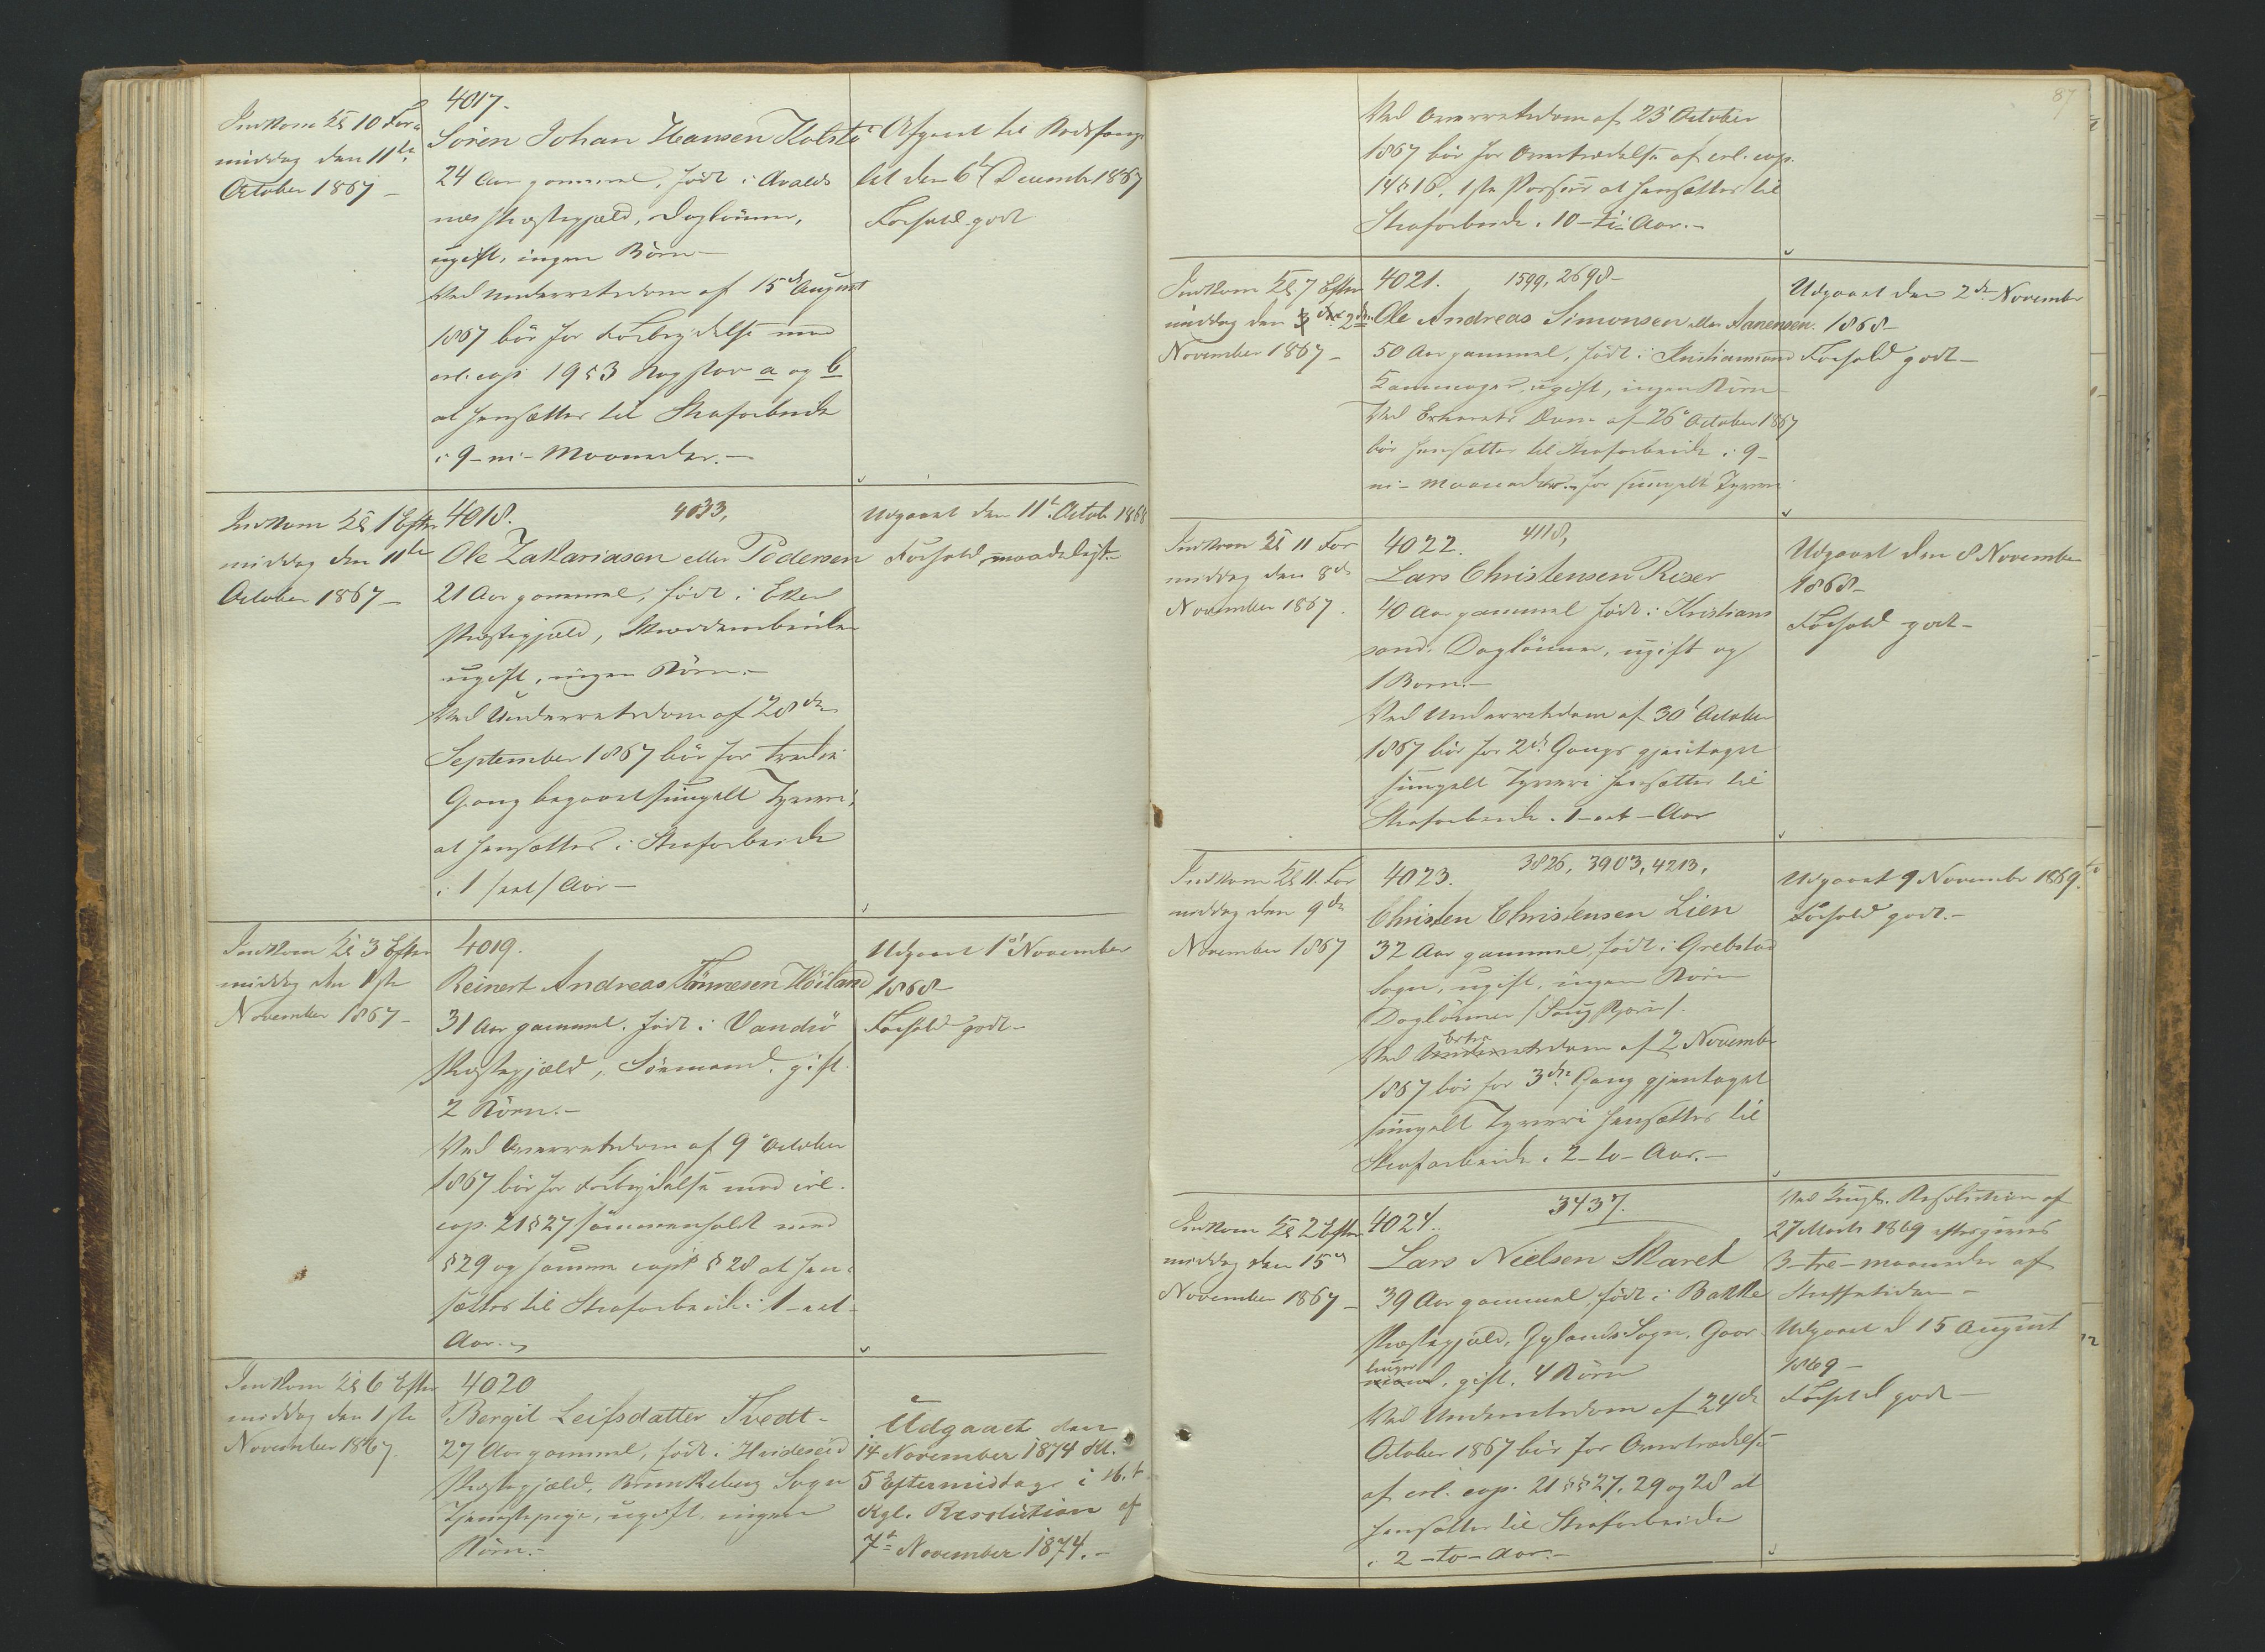 Indkom Kl 10 For-
middag den 11te
October 1867 –
4017.
Sören Johan Hansen Kolstö
24 Aar gammel, født i Avalds
nes Præstegjæld, Daglönner,
ugift, ingen Börn –
Ved Underretsdom af 15de August
1867 bör for Forbrydelse mod
crl. cap. 19 § 3 Bogstav a og b
at hensættes til Strafarbeide
i 9 – ni – Maaneder. –
Afgaaet til Bodsfæng-
let den 6te Decembr 1867
Forhold godt
Indkom Kl 1 Efter
middag den 11te
October 1867 –
4018. 4033,
Ole Zakariasen eller Pedersen
21 Aar gammel, født i Eker
Præstegjæld,
ugift, ingen Börn. –
Ved Underretsdom af 28de
September 1867 bör for tredie
Gang begaaet simpelt Tyveri,
at hensættes i Strafarbeide
i 1 /eet/ Aar –
Udgaaet den 11te Octobr 1868
Forhold maadeligt –
Indkom Kl 3 Efter
middag den 1ste
November 1867 –
4019.
Reinert Andreas Tönnesen Höiland
31 Aar gammel, født i Vandsö
Præstegjæld, Sömand, gift
2 Börn. –
Ved Overretsdom af 9de October
1867 bör for Forbrydelse mod crl.
cap. 21 § 27 sammenholdt med
§ 29 og samme capt § 28 at hen-
sættes til Strafarbeide i 1 – eet –
Aar. –
Udgaaet 1ste November
1868
Forhold godt –
Indkom Kl 6 Efter
middag den 1ste
November 1867.
4020
Bergit Leifsdatter Tvedt –
27 Aar gammel, født i Hvideseid
Præstegjæld, Brunkeberg Sogn
Tjenestepige, ugift, ingen
Börn. –
Udgaaet den
14 November 1874 Kl.
5 Eftermiddag i H. t.
Kgl. Resolution af
7de November 1874. –
87
Ved Overretsdom af 23de October
1867 bör for Overtrædelse af crl. cap.
14 § 16, 1ste at hensættes til
Strafarbeide i 10 – ti – Aar. –
Indkom Kl 7 Efter
middag den 3de 2den
November 1867 –
4021. 1599, 2698 –
Ole Andreas Simonsen eller Aanensen.
50 Aar gammel, født i Kristianssand
ugift, ingen Börn
Ved Extrarets Dom af 26de October 1867
bör hensættes til Strafarbeide i 9 –
ni – Maaneder – for simpelt Tyveri
Udgaaet den 2den November
1868 –
Forhold godt –
Indkom Kl 11 For
middag den 8de
November 1867.
4022. 4118,
Lars Christensen Riser
40 Aar gammel født i Kristians
sand, Daglönner, ugift og
1 Barn. –
Ved Underretsdom af 30te October
1867 bör for 2den Gangs gjentaget
simpelt Tyveri hensættes til
Strafarbeide i 1 – eet – Aar
Udgaaet den 8 November
1868 –
Forhold godt –
Indkom Kl 11. For
middag den 9de
November 1867
4023. 3826, 3903, 4213,
Christen Christensen Lien
32 Aar gammel, født i Grebstad
Sogn, ugift, ingen Börn
Daglönner
Extra
Ved Underretsdom af 2 Novembr
1867 bör for 3die Gang gjentaget
simpelt Tyveri hensættes til
Strafarbeide i 2 – to – Aar. –
Udgaaet 9 Novembr 1869.
Forhold godt. –
Indkom Kl 2 Efter
middag den 15de
November 1867 –
4024. 3437.
Lars Nielsen Skaret
39 Aar gammel, født i Bakke
Præstegjæld, Gylands Sogn, Gaar
bruger
mand, gift, 4 Börn
Ved Underretsdom af 24de
October 1867 bör for Overtrædelse
af crl. cap. 21 §§ 27, 29 og 28 at
hensættes til Strafarbeide
i 2 – to – Aar. –
Ved Kongl. Resolution af
27 Marts 1869 eftergives
3 – tre – maaneder af
Straffetiden –
Udgaaet d 15 August
1869 –
Forhold godt –